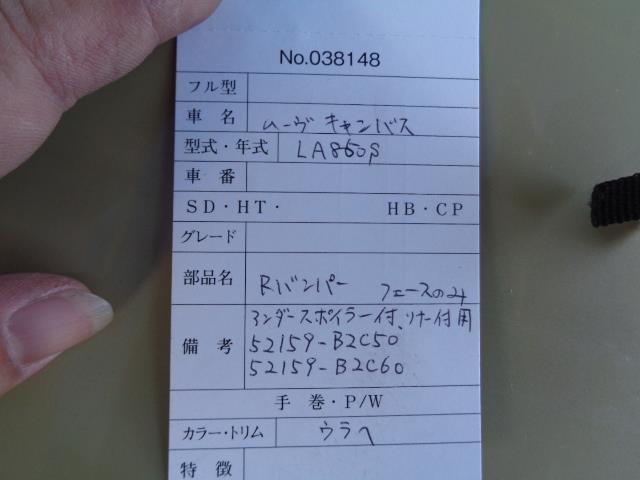 No.038148
フル型
車名 ムーヴキャンバス
型式・年式 LA850S
車番
SD・HT・ HB・CP
グレード
部品名 Rバンパー フェースのみ
備考 アンダースポイラー付、ソナー付用
52159-B2C50
52159-B2C60
手巻・P/W
カラー・トリム ウラヘ
特徴